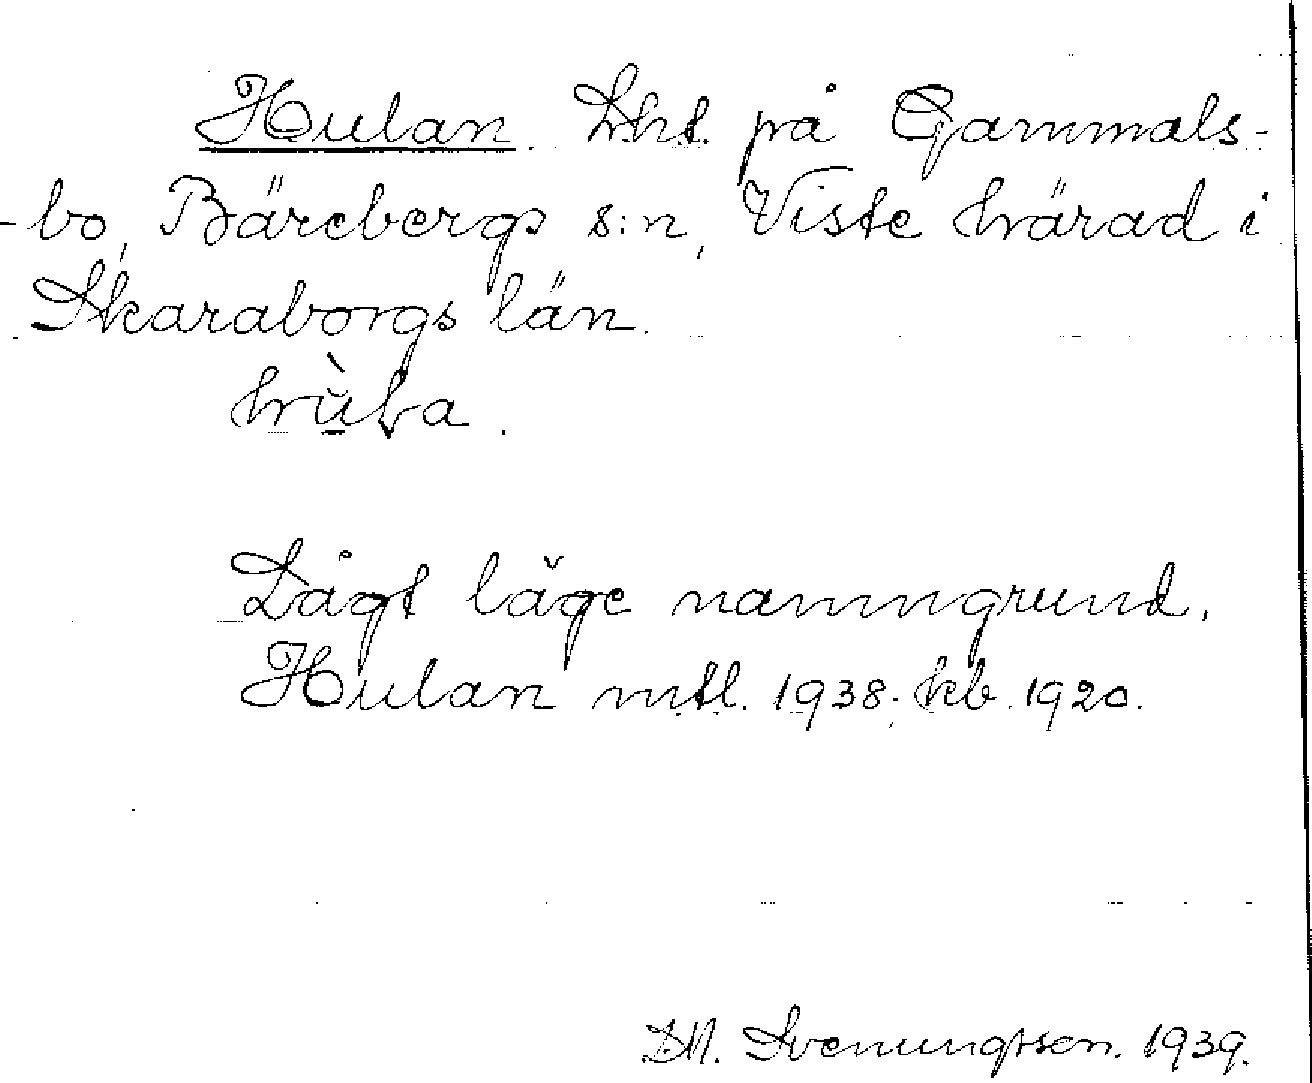 Hulan. Lht. på Gammals-
-bo, Bärebergs s:n, Viste härad i
Skaraborgs län.
Lågt läge namngrund.
Hulan mtl. 1938; kb. 1920.
Svenungsson. 1939.